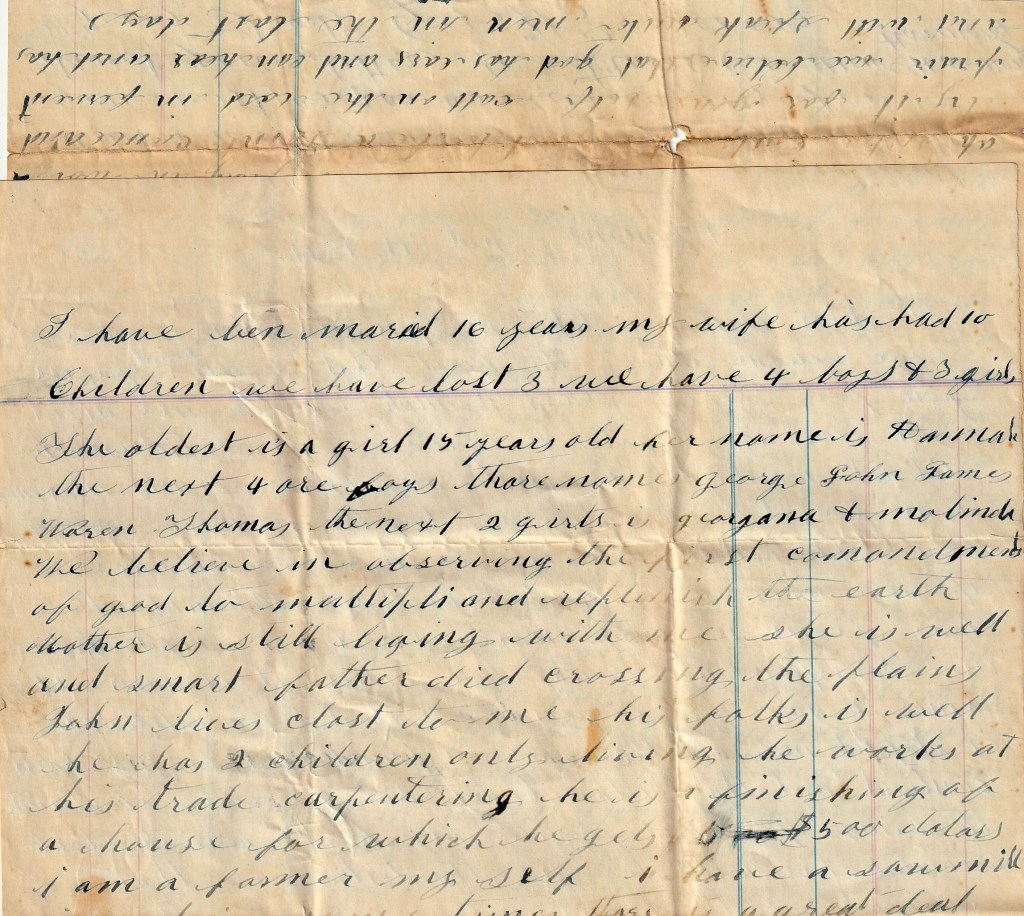 and will speak unto men in the last days
prair we believe that god has ears and can hear and has
try it for your self call on the lord in fervent
I have ben maried 16 years my wife has had 10
Children we have lost 3 we have 4 boys & 3 girls
The oldest is a girl 15 years old her name is Hannah
the next 4 are boys thare names george John James
Waren Thomas the next 2 girls is georgana & malinda
We believe in observing the first comandments
of god to multipli and replenish the earth
Mother is still living with me she is well
and smart father died crossing the plains
John lives clost to me his folks is well
he has 2 children only living he works at
his trade carpentering he is a finishing of
a house for which he gets $500 dolars
i am a farmer my self i have a sawmill
times thare is a great deal